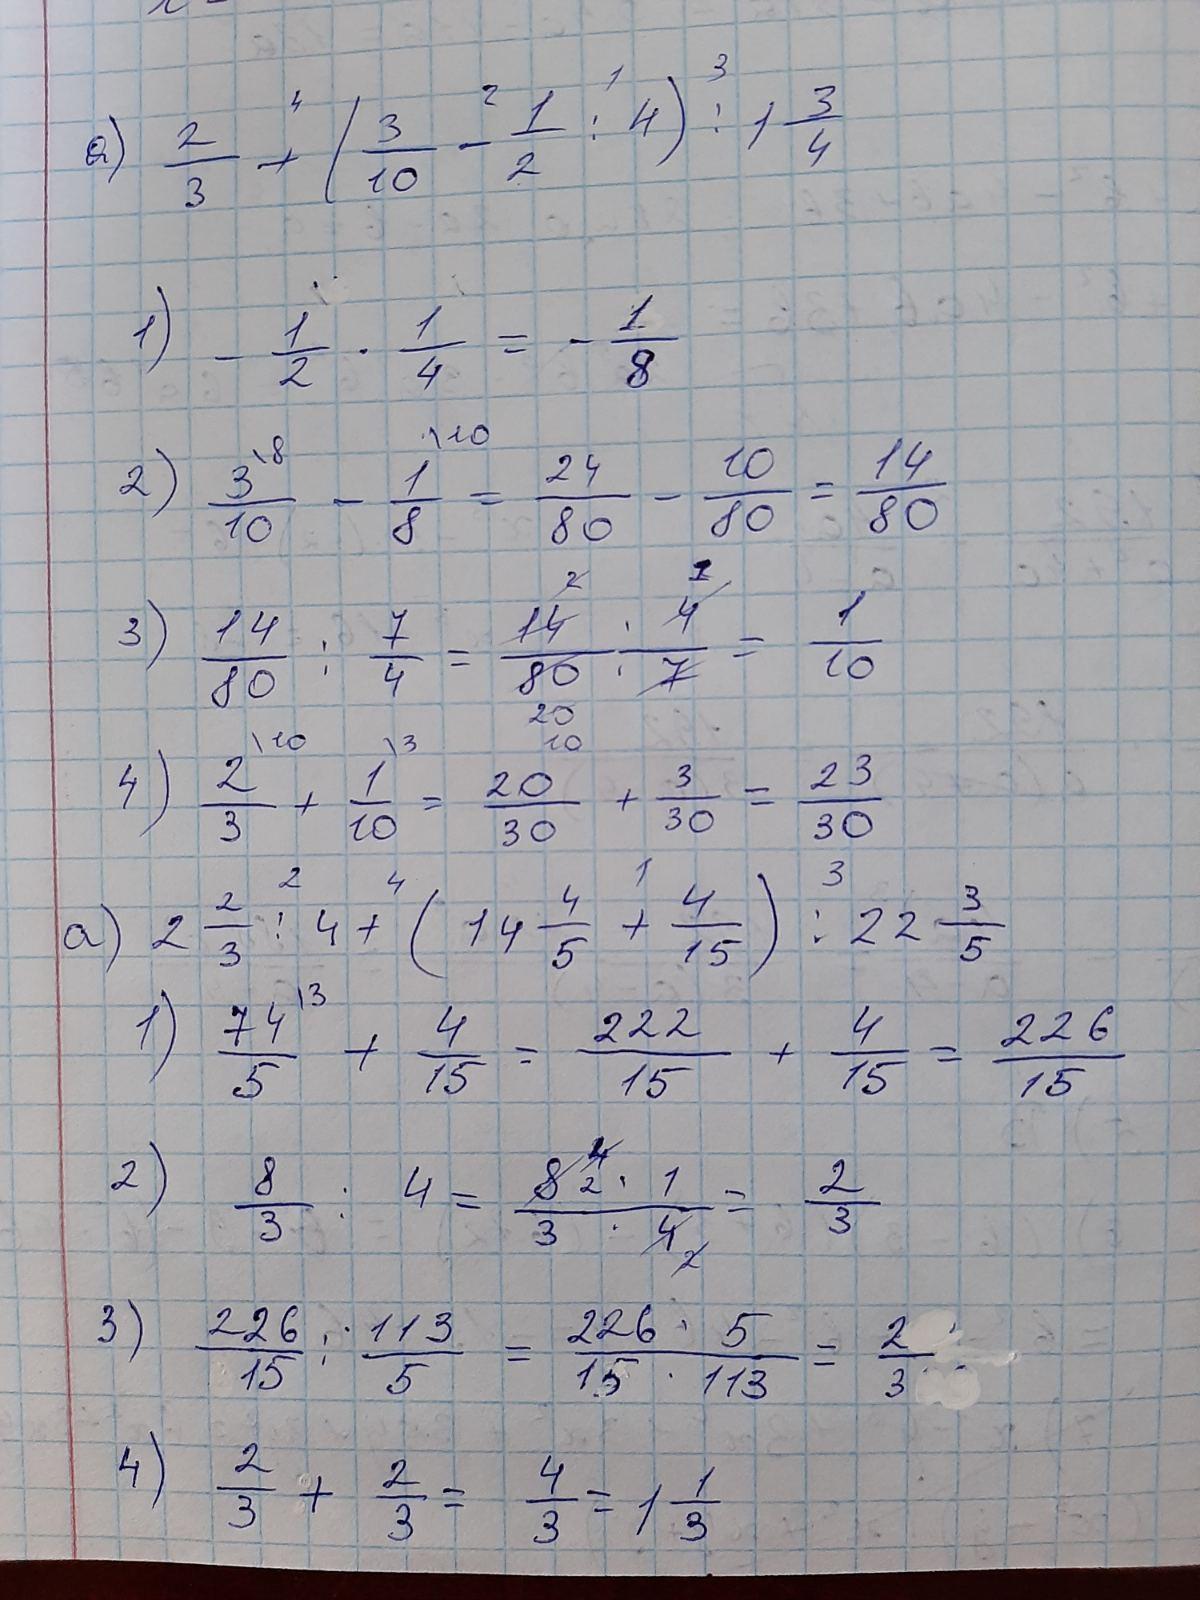 а) 2/3 + (3/10 - 1/2 : 4) : 1 3/4
1) - 1/2 · 1/4 = - 1/8
2) 3/10 - 1/8 = 24/80 - 10/80 = 14/80
3) 14/80 : 7/4 = 14/80 : 4/7 = 1/10
4) 2/3 + 1/10 = 20/30 + 3/30 = 23/30
а) 2 2/3 : 4 + (14 4/5 + 4/15) : 22 3/5
1) 74/5 + 4/15 = 222/15 + 4/15 = 226/15
2) 8/3 : 4 = 8 · 1 / 3 · 4 = 2/3
3) 226/15 : 113/5 = 226 · 5 / 15 · 113 = 2/3
4) 2/3 + 2/3 = 4/3 = 1 1/3